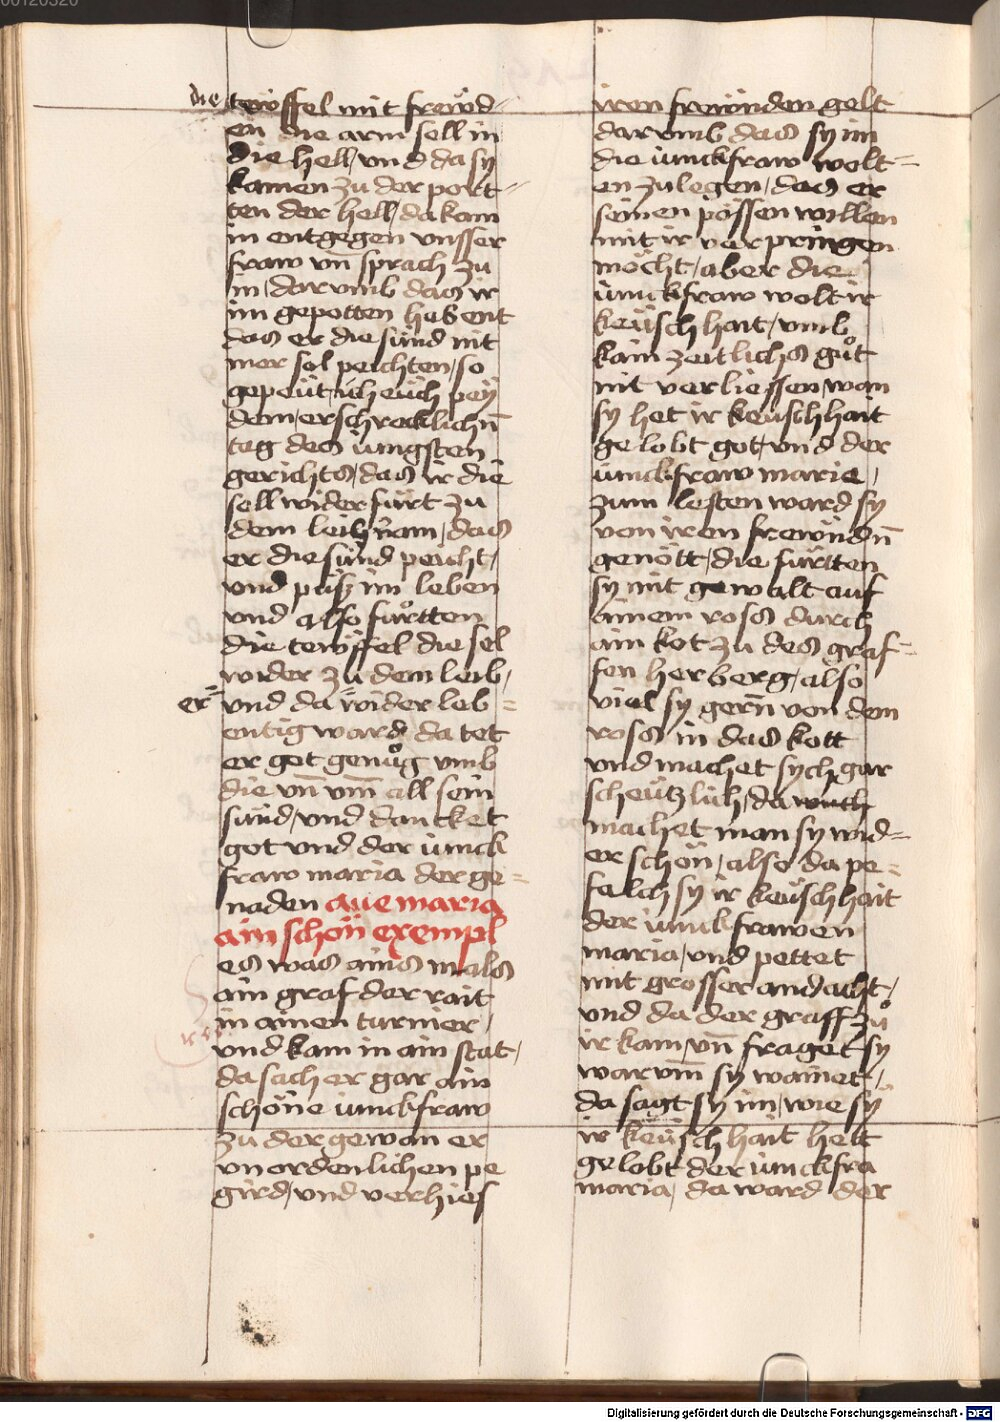 00120320
die tewffel mit frewd-
en die arm sell in
die hell / vnd da sy
kamen zu der port-
ten der hell / da kam
in entgegen vnsser
fraw vn̄ sprach zu
in / dar vmb das ir
im gepotten habent
das er die sünd nit
mer sol peichten / so
gepeüt ich eüch pey
dem erschrecklichn̄
tag des iungsten
gerichts / das ir die
sell wider fürt zu
dem leichnam / das
er die sünd peicht /
vnd püsz im leben
vnd also fürtten
die tewffel die sel
wider zu dem leib /
er vnd da wider leb-
entig ward da tet
er got genůg vmb
die vn̄ vm̄ all sein
sünd / vnd dancket
got vnd der iunck
fraw maria der ge-
naden aue maria
ain schön exempl
es was ains mals
ain graf der rait
in ainen turnier /
vnd kam in ain stat /
da sach er gar ain
schöne iunckfraw
zu der gewan er
vnordenlichen pe
gird / vnd verhies
iren frewnden gelt
dar vmb das sy im
die iunckfraw wolt-
en zu legen / das er
seinen pössen willen
mit ir verpringen
möcht / aber die
iunckfraw wolt ir
keüschhait / vmb
kain zeitlichs gůt
nit verliessen / wan
sy het ir keuschhait
gelobt got / vnd der
iunckfraw marie /
zum lesten ward sy
von iren frewndn̄
genött / die fürtten
sy mit gewalt auf
ainem ross durch
ain kot zu des graf-
fen herberg / also
viel sy gern̄ von dem
ross in das kott
vnd machet sych gar
scheützlich / da
machet man sy wid-
er schön / also da pe-
felch sy ir keüschhait
der iunckfrawen
maria / vnd pettet
mit grosser andacht /
vnd da der graff zů
ir kam / vn̄ fraget sy
warvm̄ sy wainet /
da sagt sy im / wie sy
ir keüschhait hett
gelobt der iunckfra
maria / da ward der
Digitalisierung gefördert durch die Deutsche Forschungsgemeinschaft - DFG